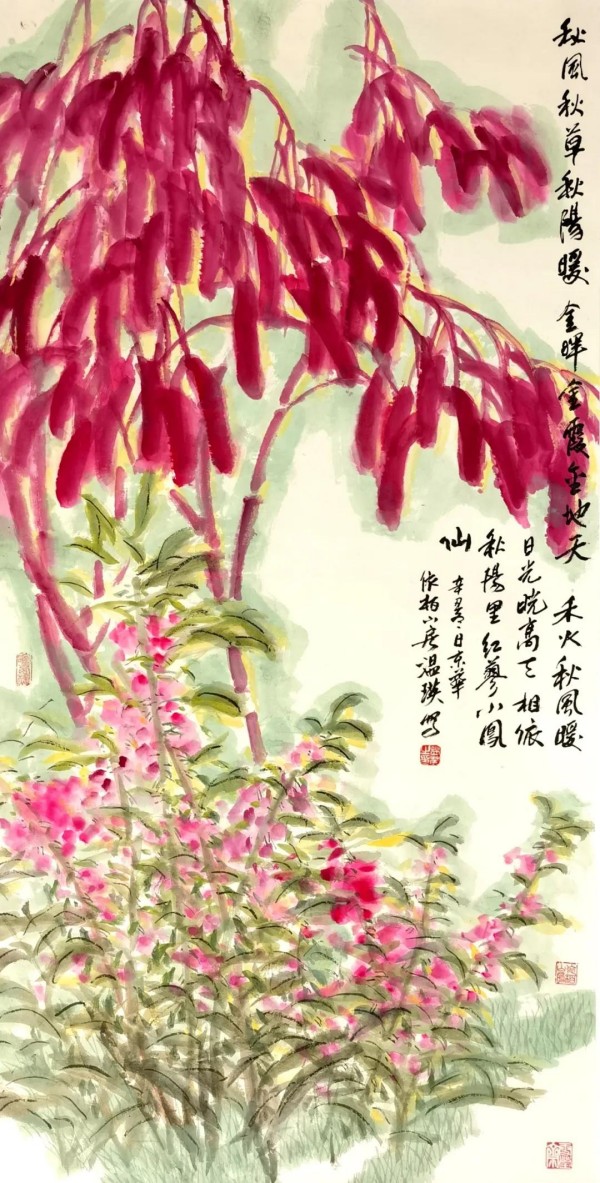 秋風秋草秋陽暖 金暉金霞金地天
禾火秋風暖
日光晄高天相依
秋陽里紅蓼小鳳
仙 辛丑 日京華
柏 居温瑛寫